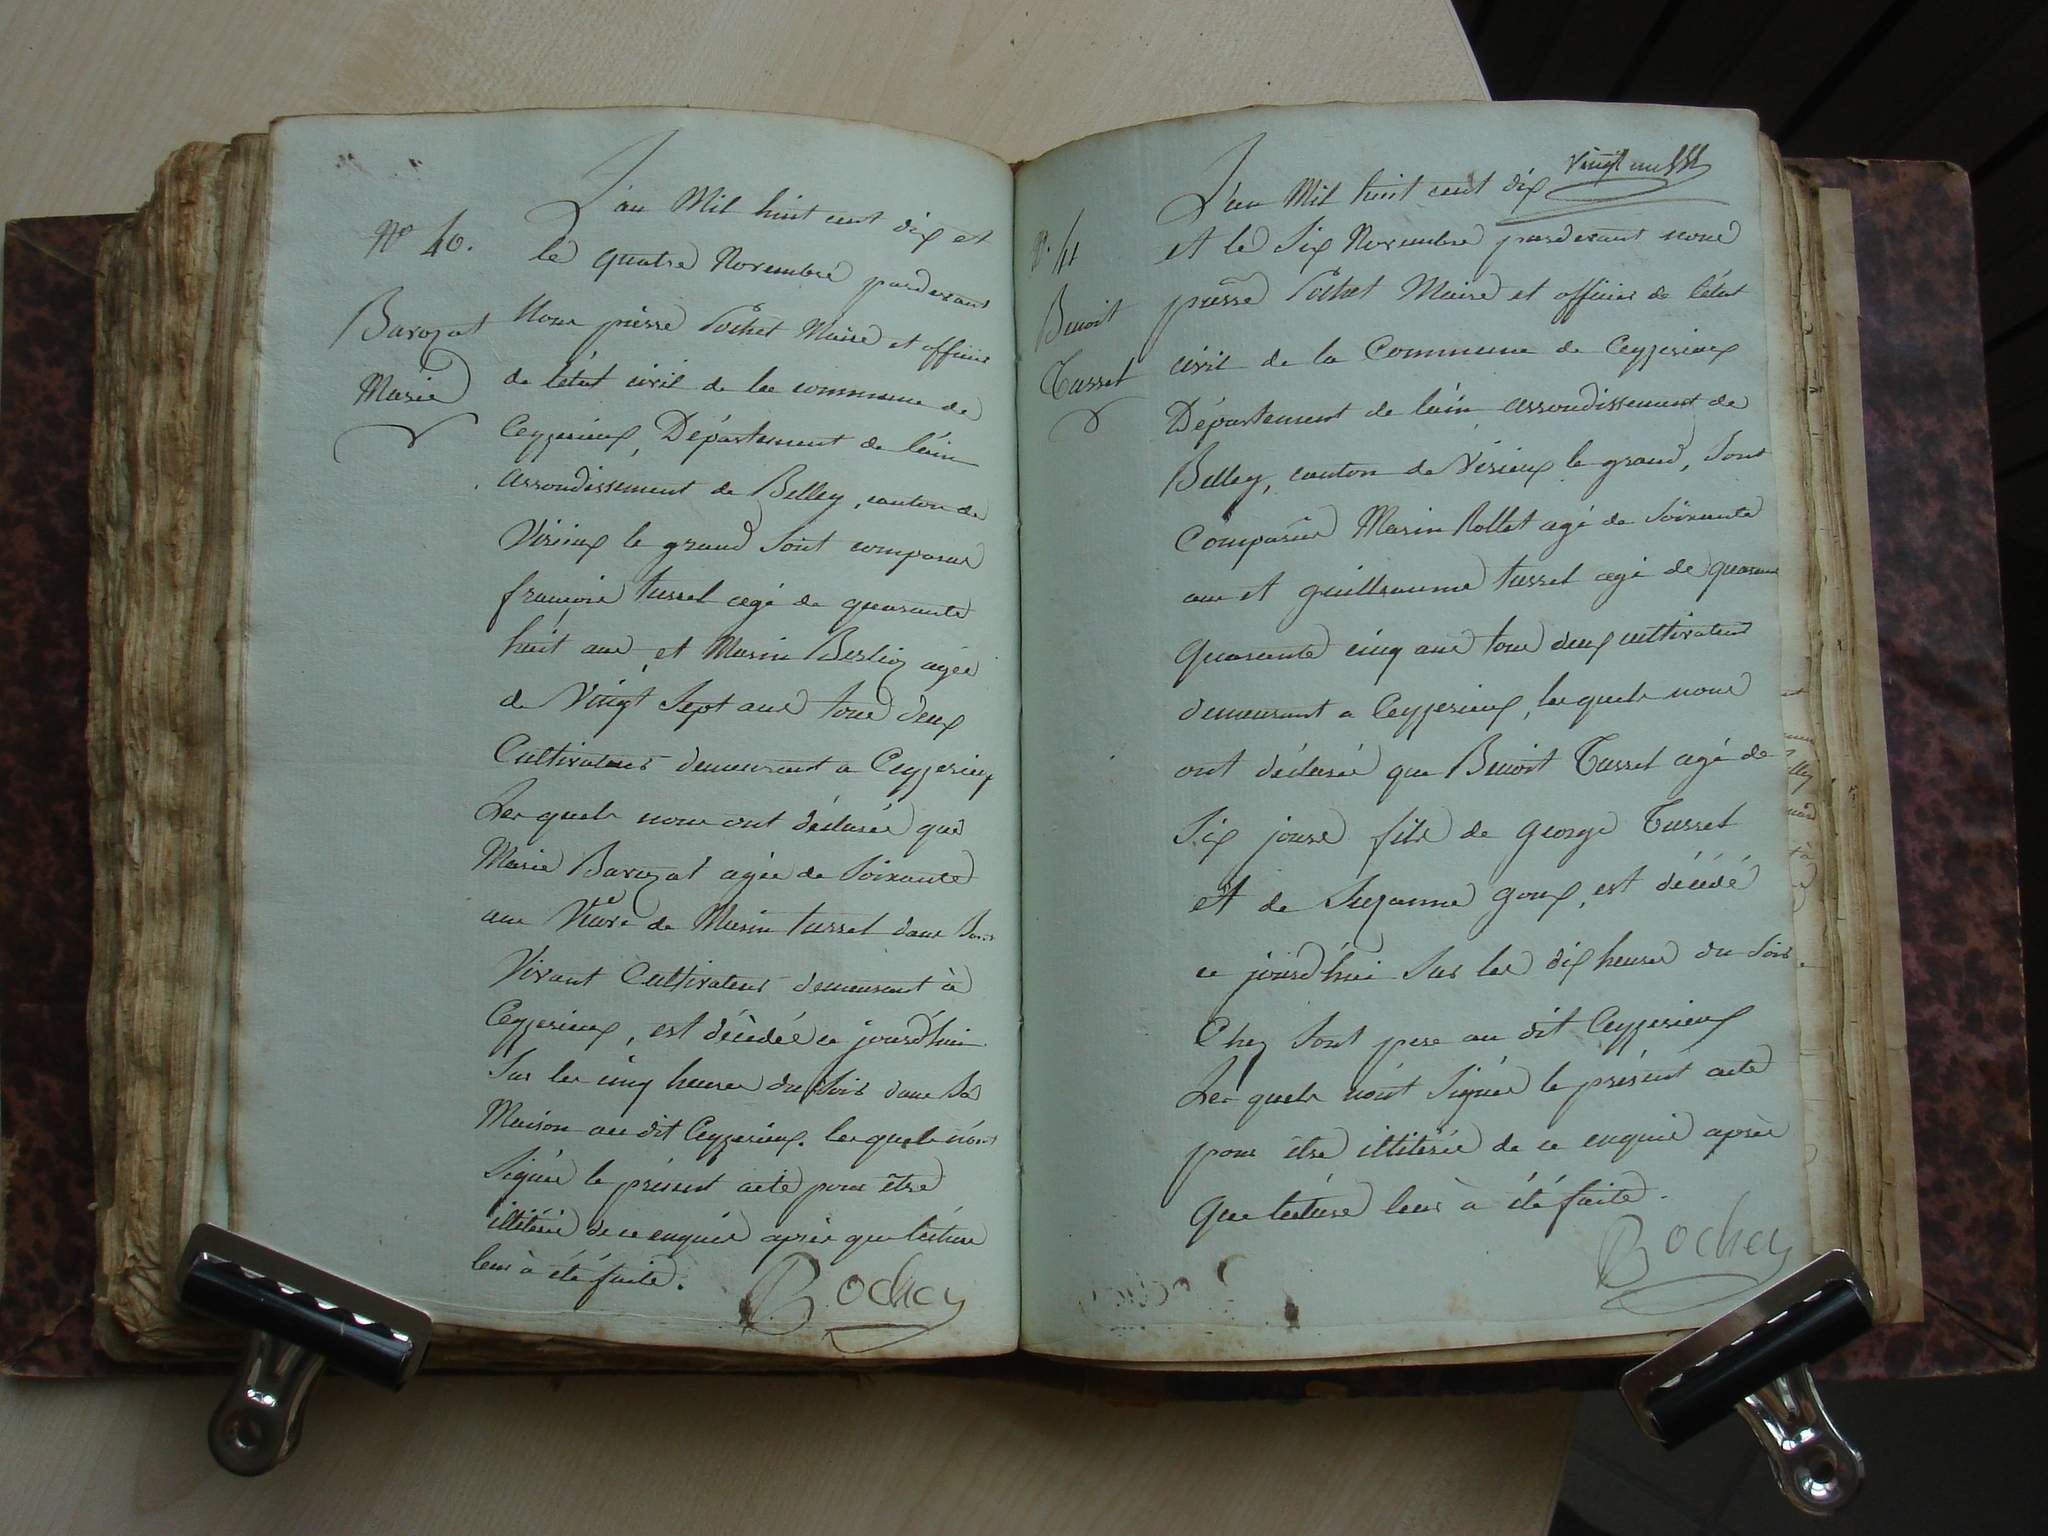 N° 40.
Barozat
Marie
L'an Mil huit cent dix et
le quatre Novembre pardevant
Nous pierre Pochet Maire et officier
de l'état civil de la commune de
Ceyzerieux, Département de l'ain
arrondissement de Belley, canton de
Virieux le grand sont comparus
françois tusset agé de quarante
huit ans, et Marin Berlioz agée
de Vingt Sept ans tous deux
Cultivateurs demeurant a Ceyzerieux
Les quels nous ont déclarée que
Marie Barozat agée de Soixante
ans Veuve de Marin tusset dans Son
Vivant Cultivateur demeurant à
Ceyzerieux, est décédée ce jourd'hui
Sur les cinq heures du Soir dans Sa
Maison au dit Ceyzerieux. les quels n'ont
Signée le présent acte pour être
illitérée de ce enquis après que lecture
leur à été faite.
Bochey
Vingt un
N. 41
Benoit
Tusset
L'an Mil huit cent dix
et le Six Novembre pardevant nous
pierre Pochet Maire et officier de l'état
civil de la Commune de Ceyzerieux
Département de l'ain arrondissement de
Belley, canton de Virieux le grand, Sont
Comparus Marin Rollet agé de Soixante
ans et guilleaume tusset agé de quarante
quarante cinq ans tous deux cultivateurs
demeurant a Ceyzerieux, les quels nous
ont déclarée que Benoit Tusset agé de
Six jours fils de george Tusset
et de Suzanne goux, est décédé
ce jourd'hui Sur les dix heures du Soir.
Chez Sont pere au dit Ceyzerieux
Les quels n'ont Signée le présent acte
pour être illitérée de ce enquis après
que lecture leur à été faite.
Bochey